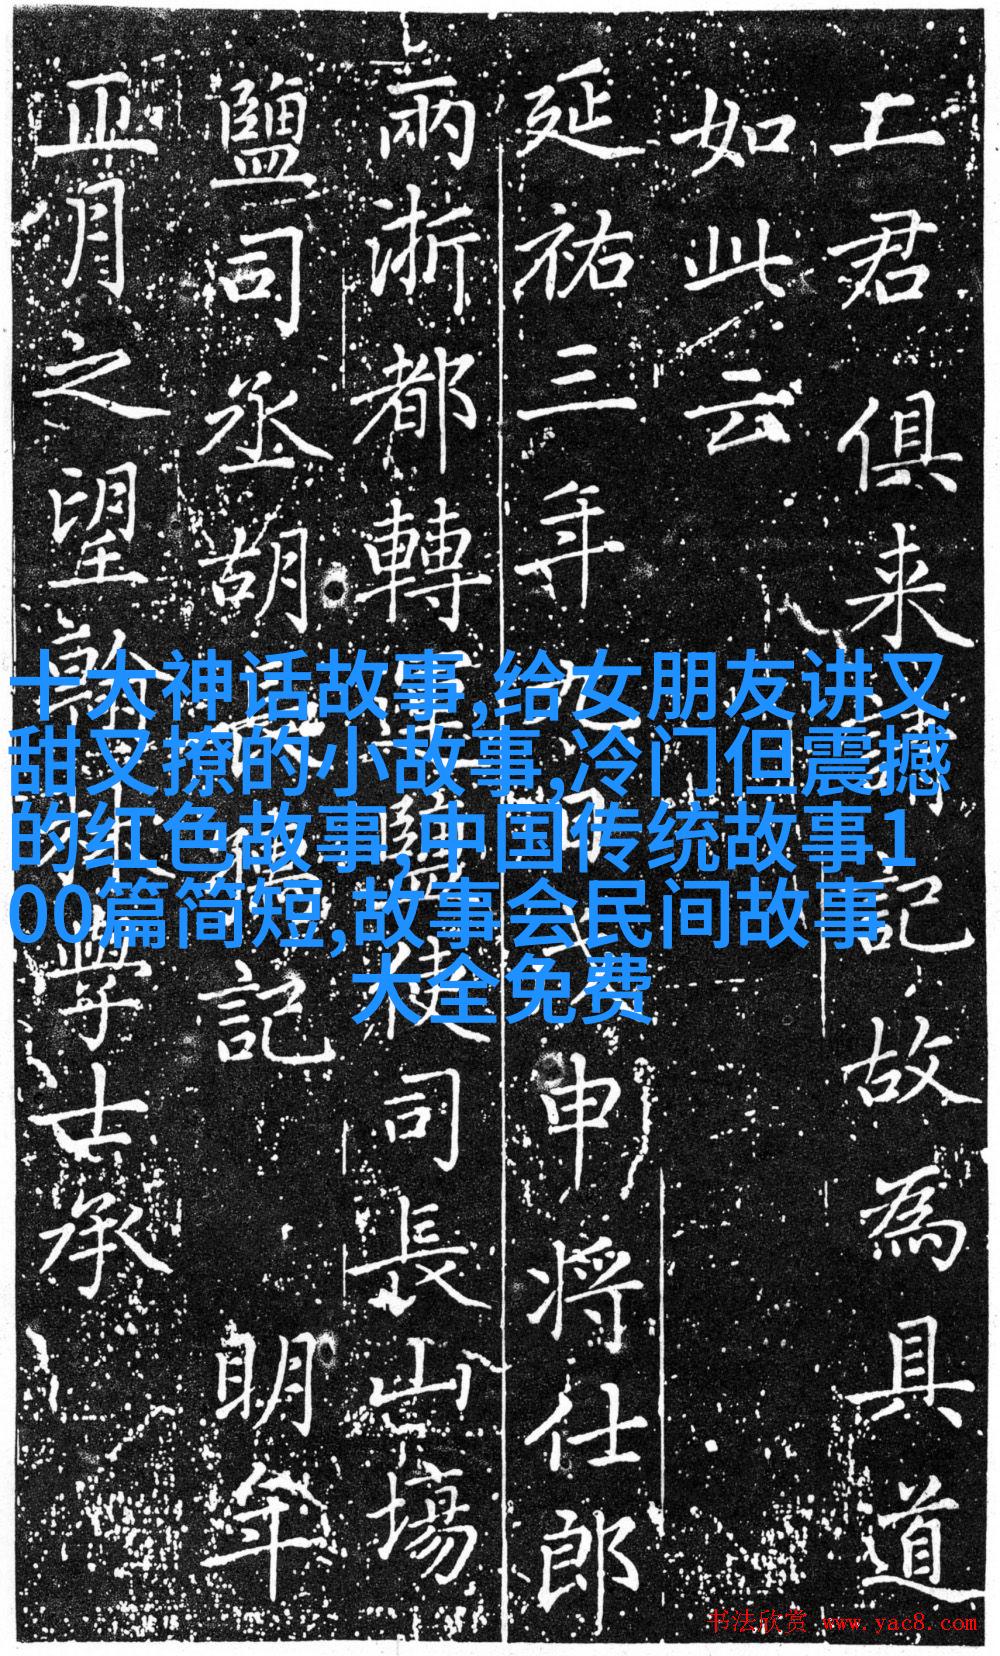 君俱来請記故為具道
如此云
延祐三年九月申将仕郎
兩浙都轉運鹽使司長山場
鹽司丞胡長孺記 明年
正月之望翰林學士承
十大神话故事,给女朋友讲又
甜又撩的小故事,冷门但震撼
的红色故事,中国传统故事1
00篇简短,故事会民间故事
大全免费
书法欣赏 www.yac8.com